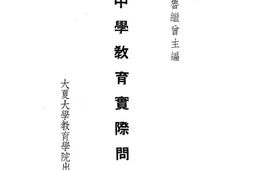 魯繼曾主編
中學教育實際問
大夏大學教育學院出